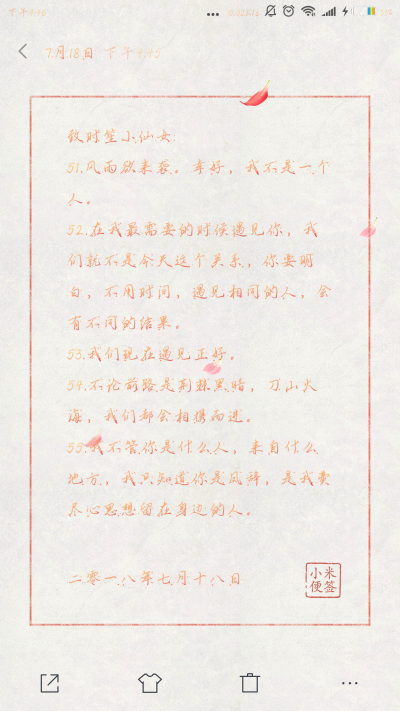 下午1:45
7月18日 下午1:45
致时笙小仙女:
51.风雨欲来袭。幸好，我不是一个
人。
52.在我最需要的时候遇见你，我
们就不是今天这个关系，你要明
白，不同时间，遇见相同的人，会
有不同的结果。
53.我们现在遇见正好。
54.不论前路是荆棘黑暗，刀山火
海，我们都会相携而进。
55.我不管你是什么人，来自什么
地方，我只知道你是凤辞，是我费
尽心思想留在身边的人。
二零一八年七月十八日
小米
便签